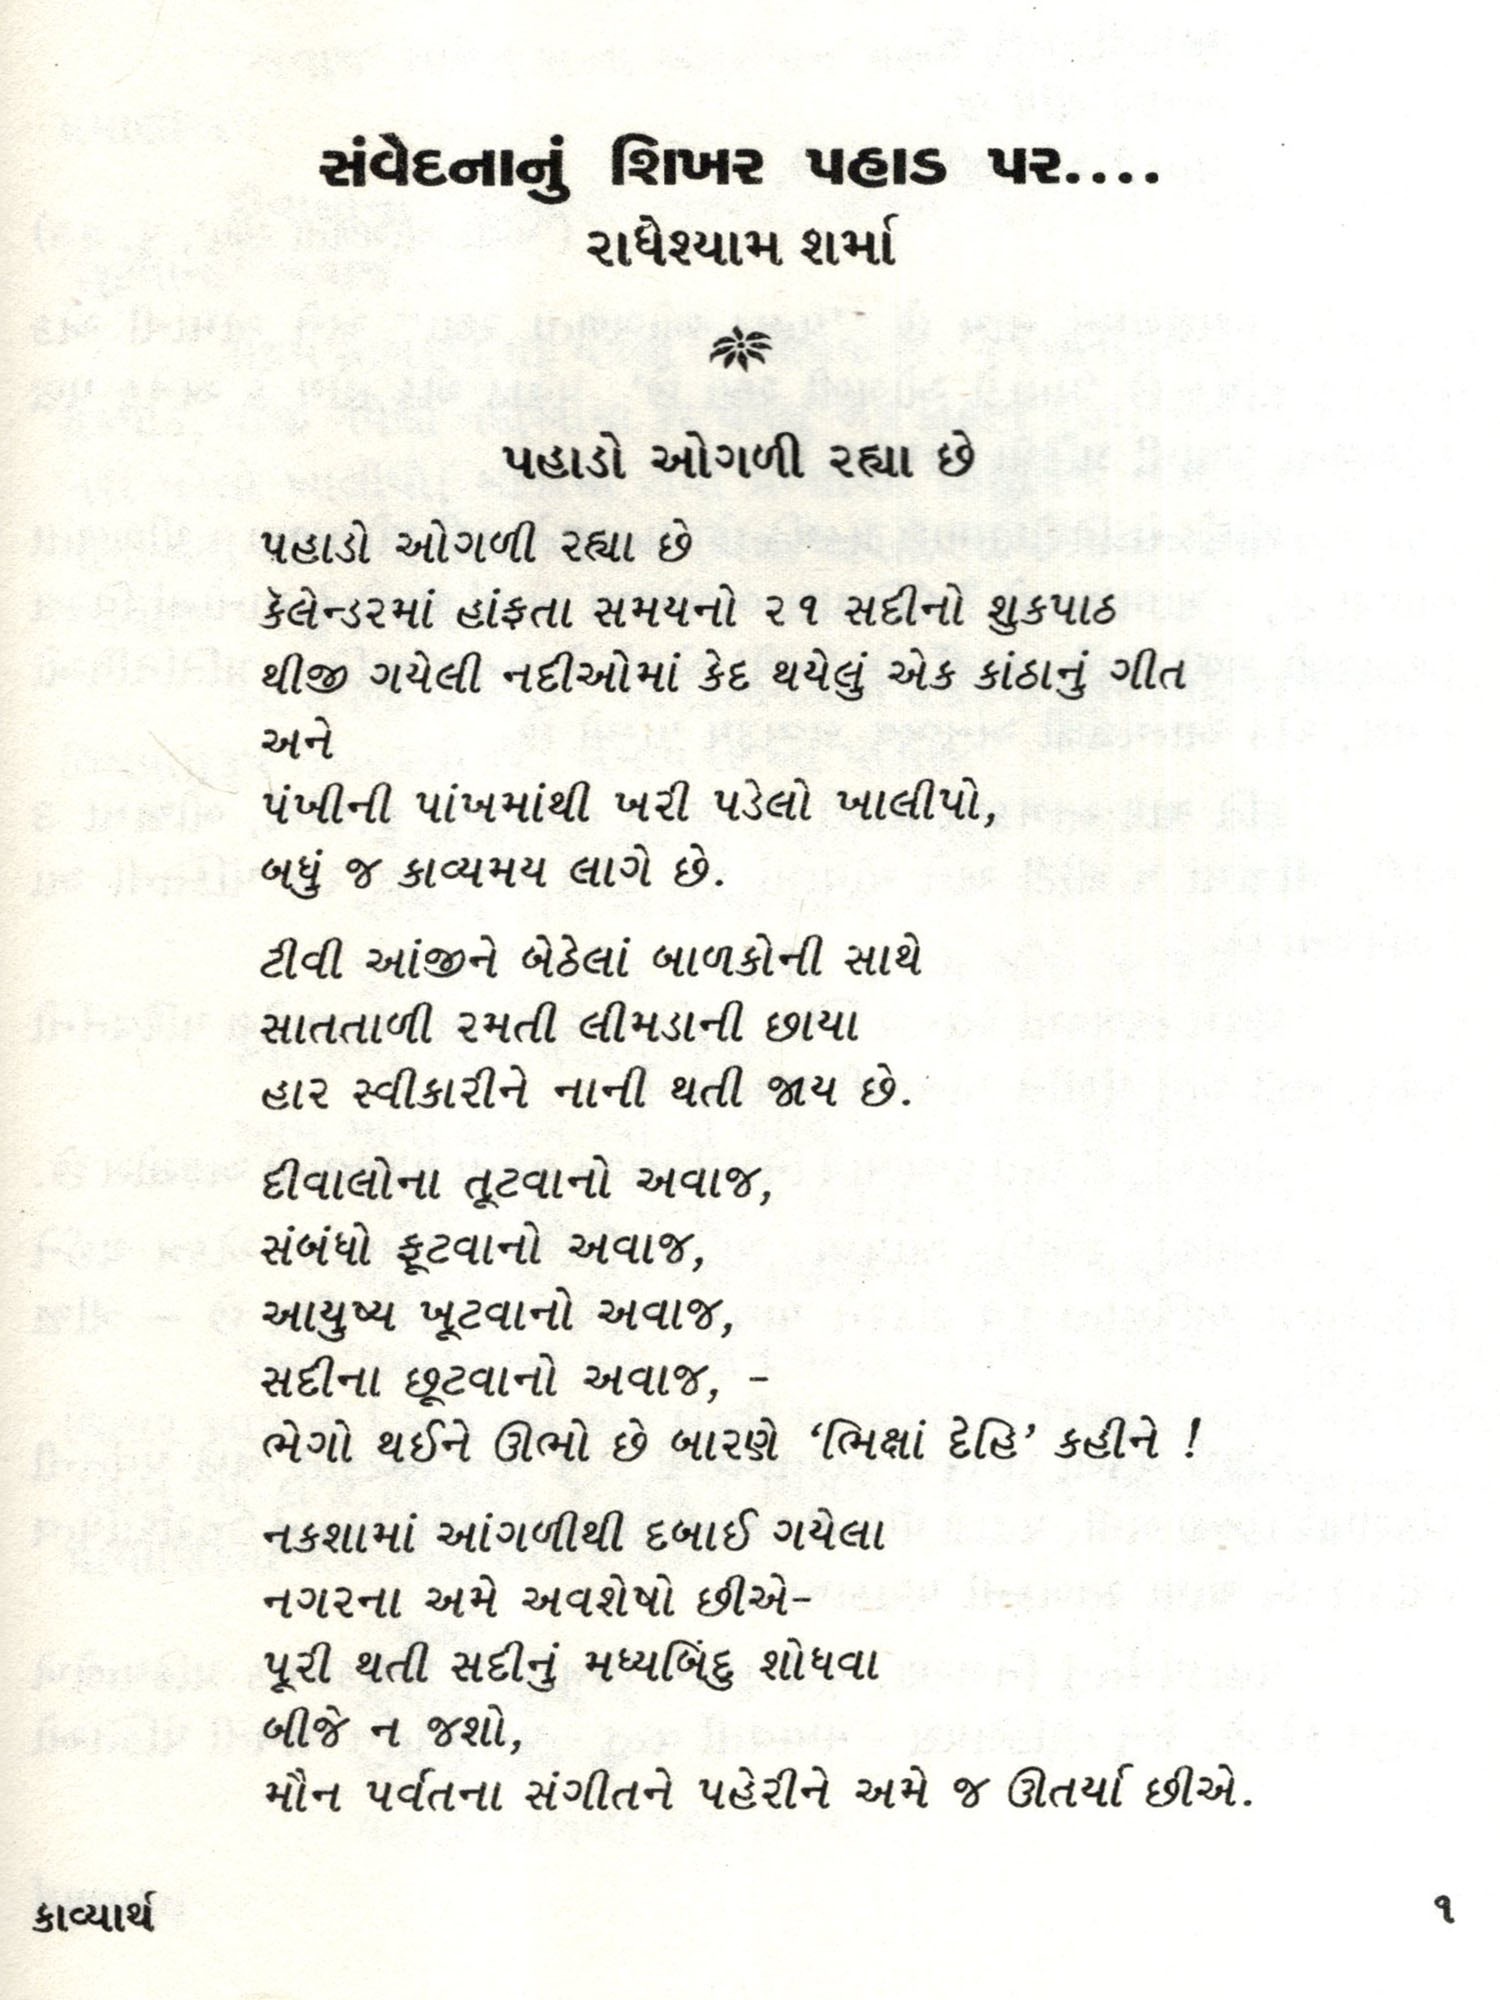 સંવેદનાનું શિખર પહાડ પર....
રાધેશ્યામ શર્મા
પહાડો ઓગળી રહ્યા છે
પહાડો ઓગળી રહ્યા છે
કૅલેન્ડરમાં હાંફતા સમયનો ૨૧ સદીનો શુકપાઠ
થીજી ગયેલી નદીઓમાં કેદ થયેલું એક કાંઠાનું ગીત
અને
પંખીની પાંખમાંથી ખરી પડેલો ખાલીપો,
બધું જ કાવ્યમય લાગે છે.
ટીવી આંજીને બેઠેલાં બાળકોની સાથે
સાતતાળી રમતી લીમડાની છાયા
હાર સ્વીકારીને નાની થતી જાય છે.
દીવાલોના તૂટવાનો અવાજ,
સંબંધો ફૂટવાનો અવાજ,
આયુષ્ય ખૂટવાનો અવાજ,
સદીના છૂટવાનો અવાજ, –
ભેગો થઈને ઊભો છે બારણે ‘ભિક્ષાં દેહિ’ કહીને !
નકશામાં આંગળીથી દબાઈ ગયેલા
નગરના અમે અવશેષો છીએ–
પૂરી થતી સદીનું મધ્યબિંદુ શોધવા
બીજે ન જશો,
મૌન પર્વતના સંગીતને પહેરીને અમે જ ઊતર્યા છીએ.
કાવ્યાર્થ
૧